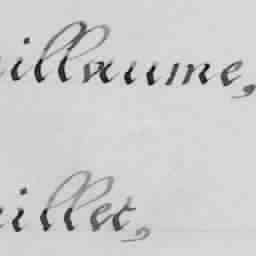 uillaume,
uillet,